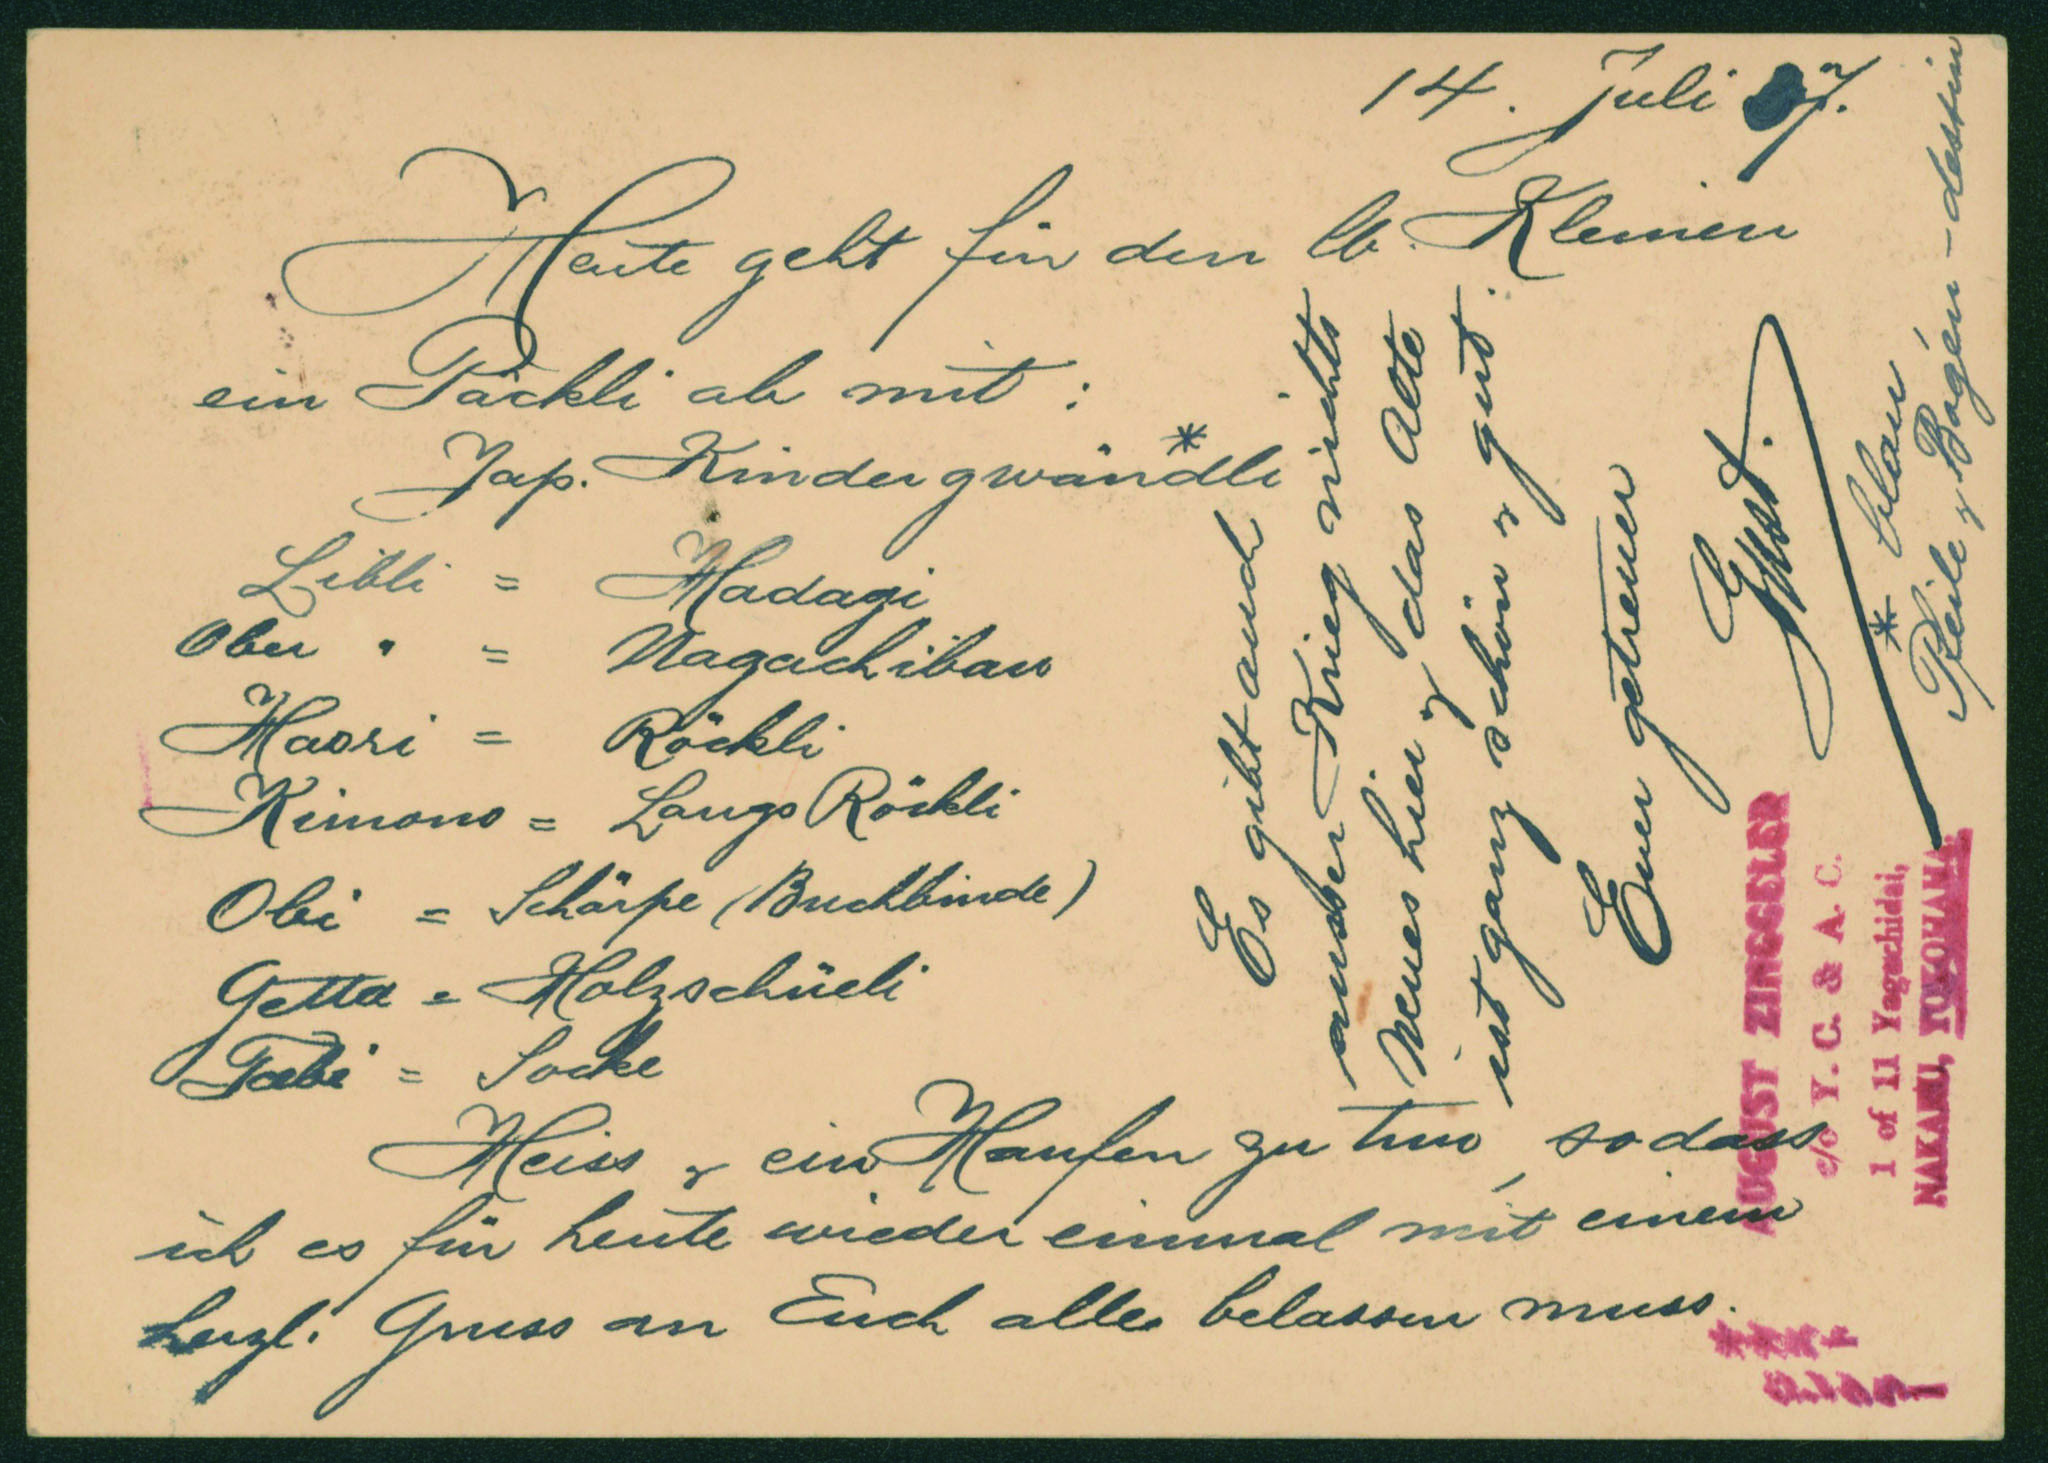 14. Juli 37.
Heute geht für den lb. Kleinen
ein Päckli ab mit :
Jap. Kindergwändli *
Libli = Hadagi
Ober " = Nagachiban
Haori = Röckli
Kimono = Langs Röckli
Obi = Schärpe (Buchbinde)
Getta = Holzschüeli
Tabi = Socke
Heiss & ein Haufen zu tun, sodass
ich es für heute wieder einmal mit einem
herzl. Gruss an Euch alle belassen muss.
Es gibt auch
ausser Krieg nichts
Neues hier & das Alte
ist ganz schön & gut.
Euer getreuer
Gust.
* blau
Pfeile & Bogen-dessin
AUGUST ZINGGELER
c/o Y. C. & A. C.
1 of 11 Yaguchidai,
NAKAKU, YOKOHAMA.